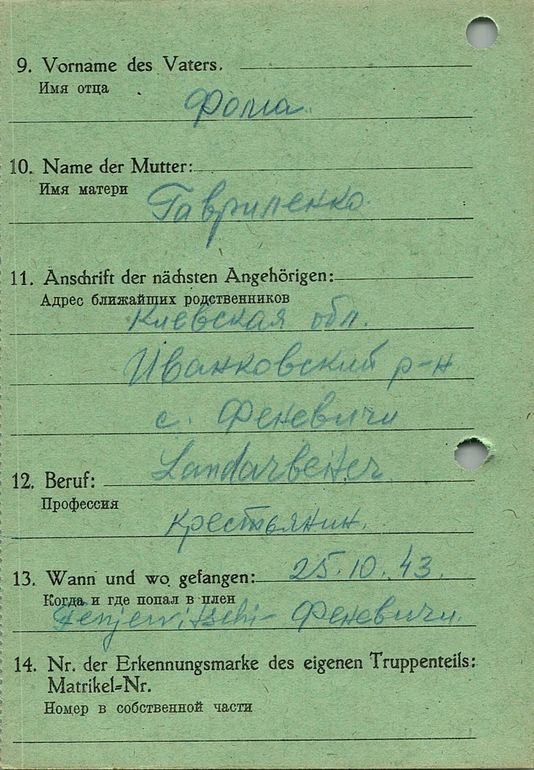 9. Vorname des Vaters.
Имя отца
Фома.
10. Name der Mutter:
Имя матери
Гавриленко
11. Anschrift der nächsten Angehörigen:
Адрес ближайщих родственников
Киевская обл.
Иванковский р-н
с. Феневичи
Landarbeiter
12. Beruf:
Профессия
крестьянин.
13. Wann und wo gefangen: 25.10.43.
Когда и где попал в плен
Fenjewitschi - Феневичи.
14. Nr. der Erkennungsmarke des eigenen Truppenteils:
Matrikel-Nr.
Номер в собственной части